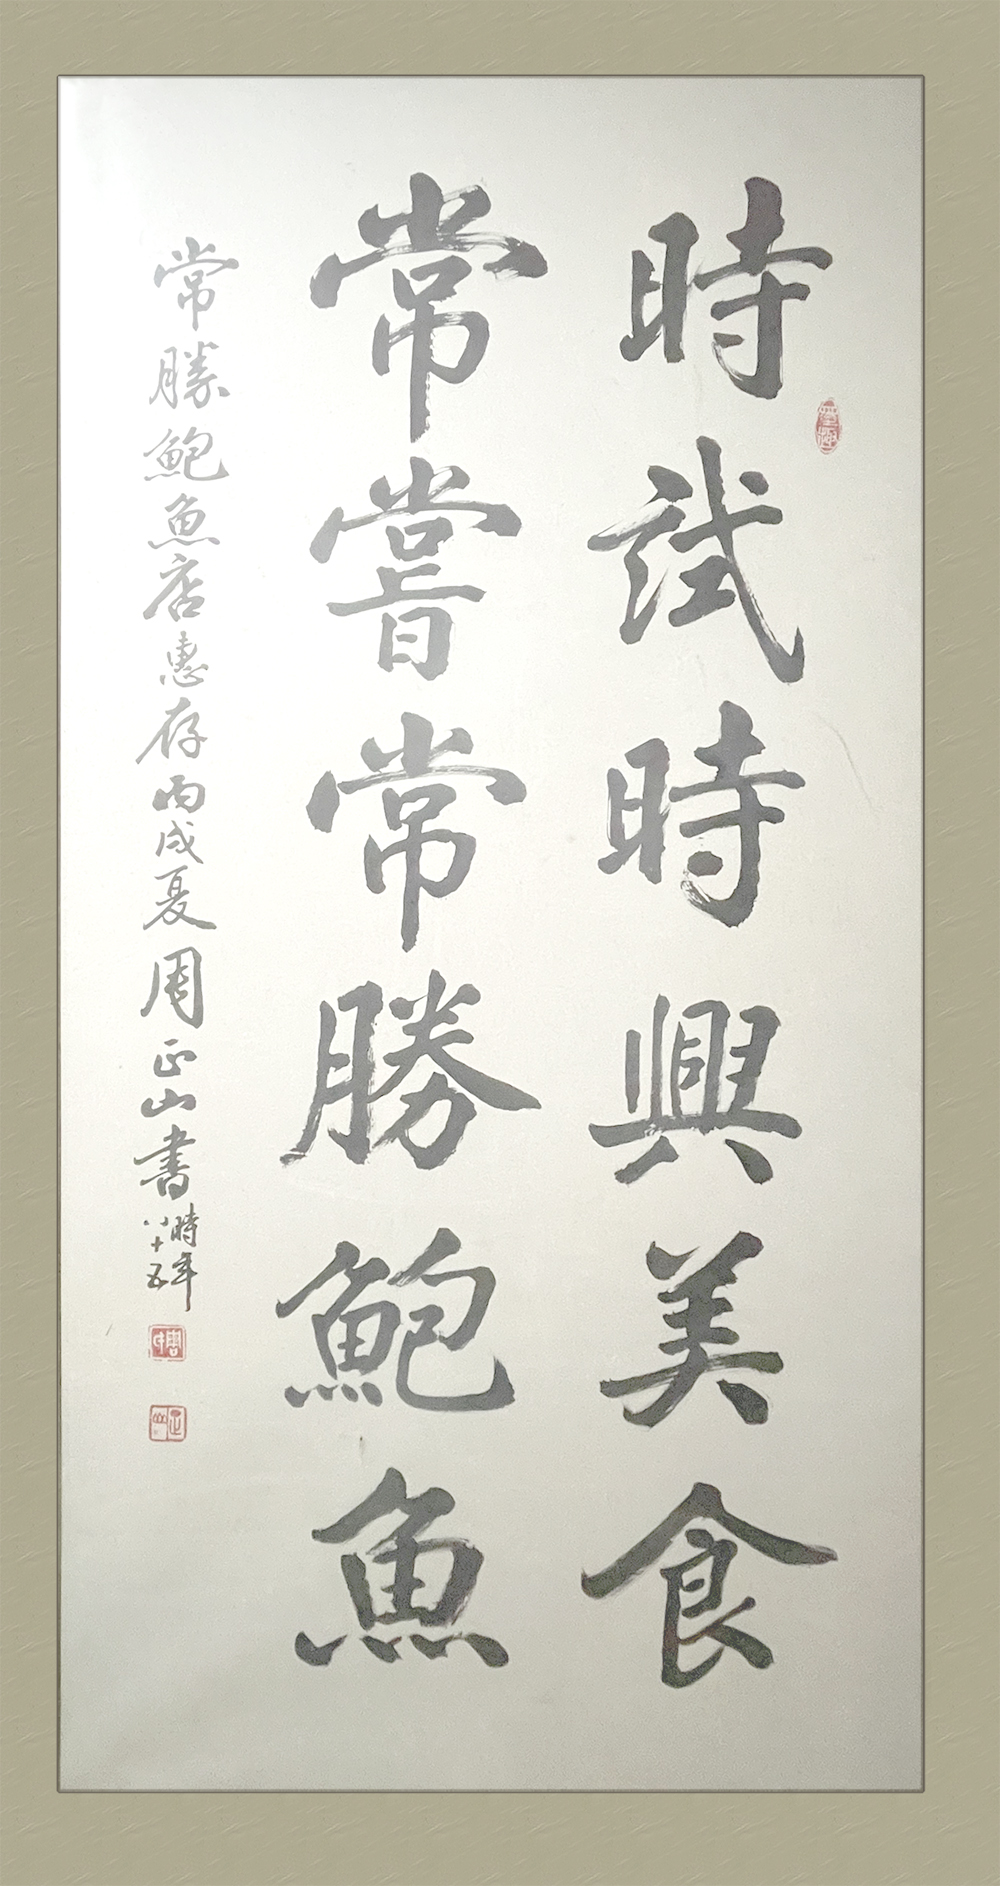 時試時興美食
常嘗常勝鮑魚
常勝鮑魚店惠存丙戌夏周正山書時年八十五